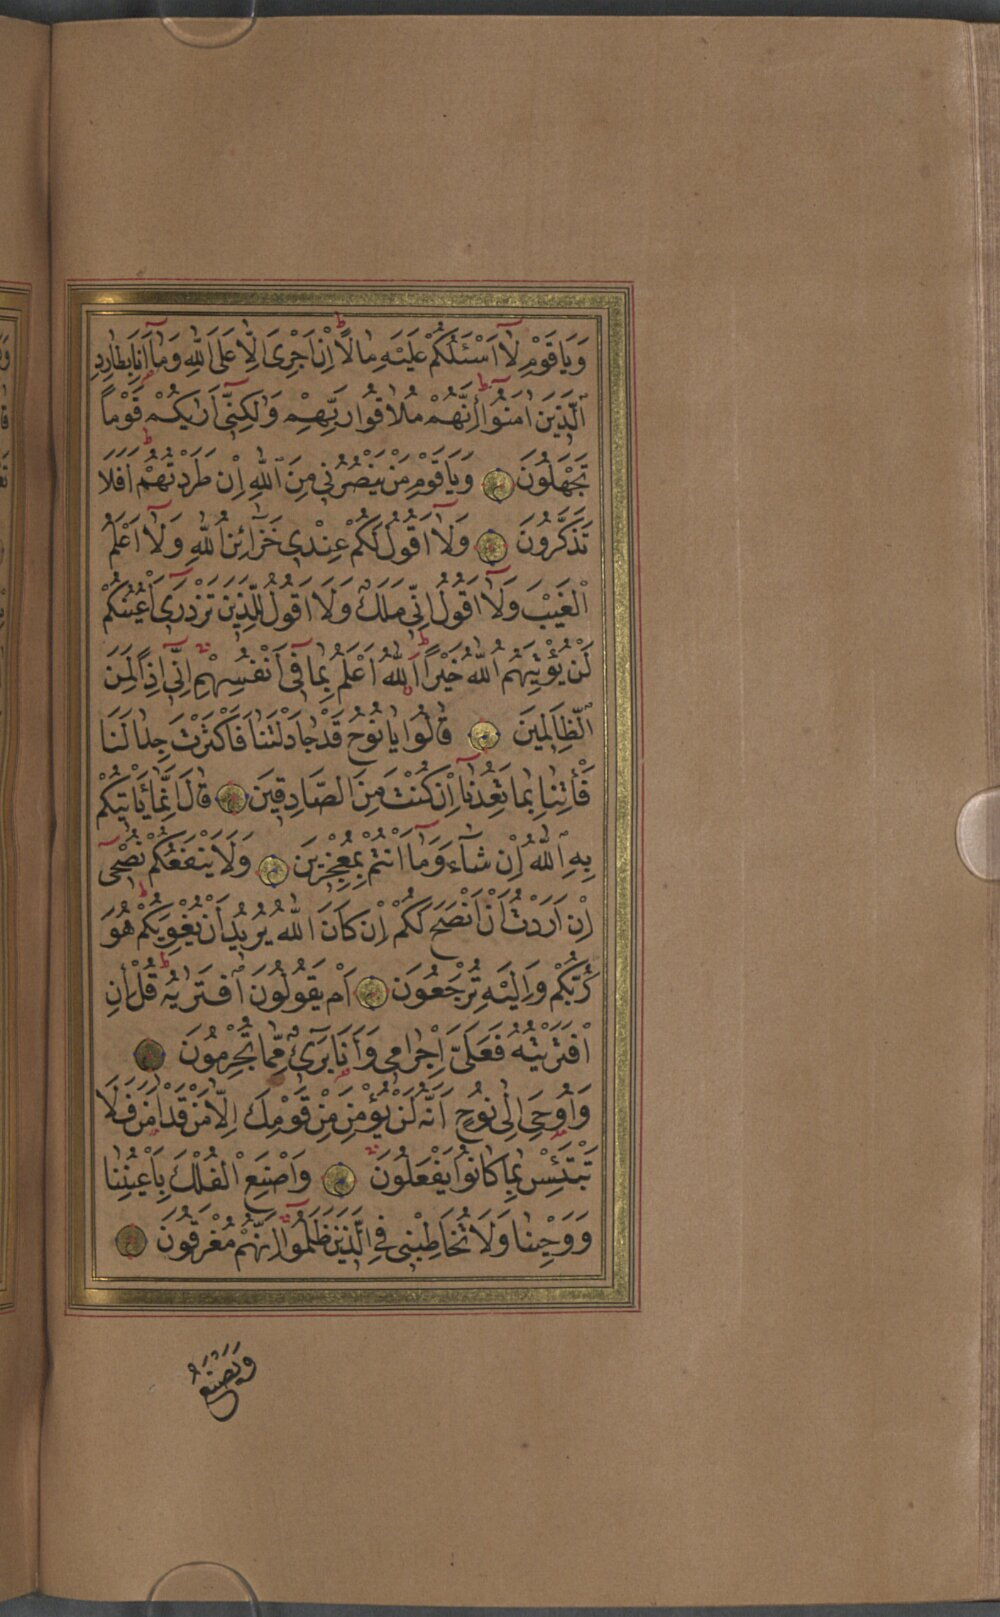 وَيَاقَوْمِ لَٓا اَسْئَلُكُمْ عَلَيْهِ مَالًا اِنْ اَجْرِىَ اِلَّا عَلَى اللّٰهِ وَمَٓا اَنَا۬ بِطَارِدِ
الَّذِينَ اٰمَنُٓوا اِنَّهُمْ مُلَاقُوا رَبِّهِمْ وَلٰكِنِّٓى اَرٰيكُمْ قَوْمًا
تَجْهَلُونَ وَيَاقَوْمِ مَنْ يَنْصُرُنِى مِنَ اللّٰهِ اِنْ طَرَدْتُهُمْ اَفَلَا
تَذَكَّرُونَ وَلَٓا اَقُولُ لَكُمْ عِنْدِى خَزَٓائِنُ اللّٰهِ وَلَٓا اَعْلَمُ
الْغَيْبَ وَلَٓا اَقُولُ اِنِّى مَلَكٌ وَلَٓا اَقُولُ لِلَّذِينَ تَزْدَرِٓى اَعْيُنُكُمْ
لَنْ يُؤْتِيَهُمُ اللّٰهُ خَيْرًا اَللّٰهُ اَعْلَمُ بِمَا فِٓى اَنْفُسِهِمْ اِنِّٓى اِذًا لَمِنَ
الظَّالِمِينَ قَالُوا يَانُوحُ قَدْ جَادَلْتَنَا فَاَكْثَرْتَ جِدَالَنَا
فَأْتِنَا بِمَا تَعِدُنَٓا اِنْ كُنْتَ مِنَ الصَّادِقِينَ قَالَ اِنَّمَا يَأْتِيكُمْ
بِهِ اللّٰهُ اِنْ شَٓاءَ وَمَٓا اَنْتُمْ بِمُعْجِزِينَ وَلَا يَنْفَعُكُمْ نُصْحِٓى
اِنْ اَرَدْتُ اَنْ اَنْصَحَ لَكُمْ اِنْ كَانَ اللّٰهُ يُرِيدُ اَنْ يُغْوِيَكُمْ هُوَ
رَبُّكُمْ وَاِلَيْهِ تُرْجَعُونَ اَمْ يَقُولُونَ افْتَرٰيهُ قُلْ اِنِ
افْتَرَيْتُهُ فَعَلَىَّ اِجْرَامِى وَاَنَا۬ بَرِٓىءٌ مِمَّا تُجْرِمُونَ
وَاُوحِىَ اِلٰى نُوحٍ اَنَّهُ لَنْ يُؤْمِنَ مِنْ قَوْمِكَ اِلَّا مَنْ قَدْ اٰمَنَ فَلَا
تَبْتَئِسْ بِمَا كَانُوا يَفْعَلُونَ وَاصْنَعِ الْفُلْكَ بِاَعْيُنِنَا
وَوَحْيِنَا وَلَا تُخَاطِبْنِى فِى الَّذِينَ ظَلَمُٓوا اِنَّهُمْ مُغْرَقُونَ
وَيَصْنَعُ